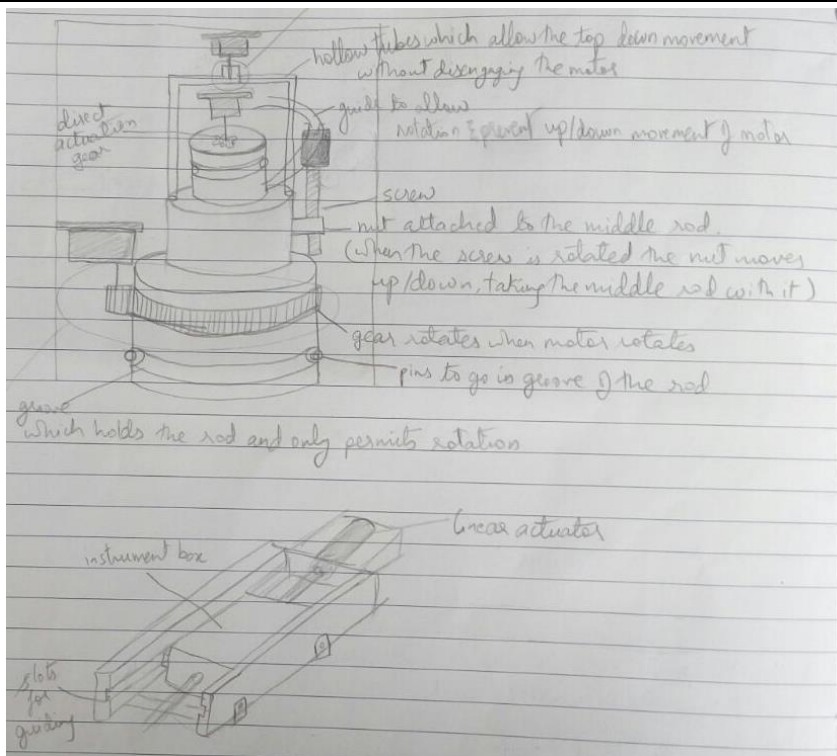 hollow tubes which allow the top down movement
without disengaging the motor
direct
actuation
gear
guide to allow
rotation & prevent up/down movement of motor
screw
nut attached to the middle rod.
(when the screw is rotated the nut moves
up/down, taking the middle rod with it)
gear rotates when motor rotates
pins to go in groove of the rod
groove
which holds the rod and only permits rotation
linear actuator
instrument box
slots
for
guiding